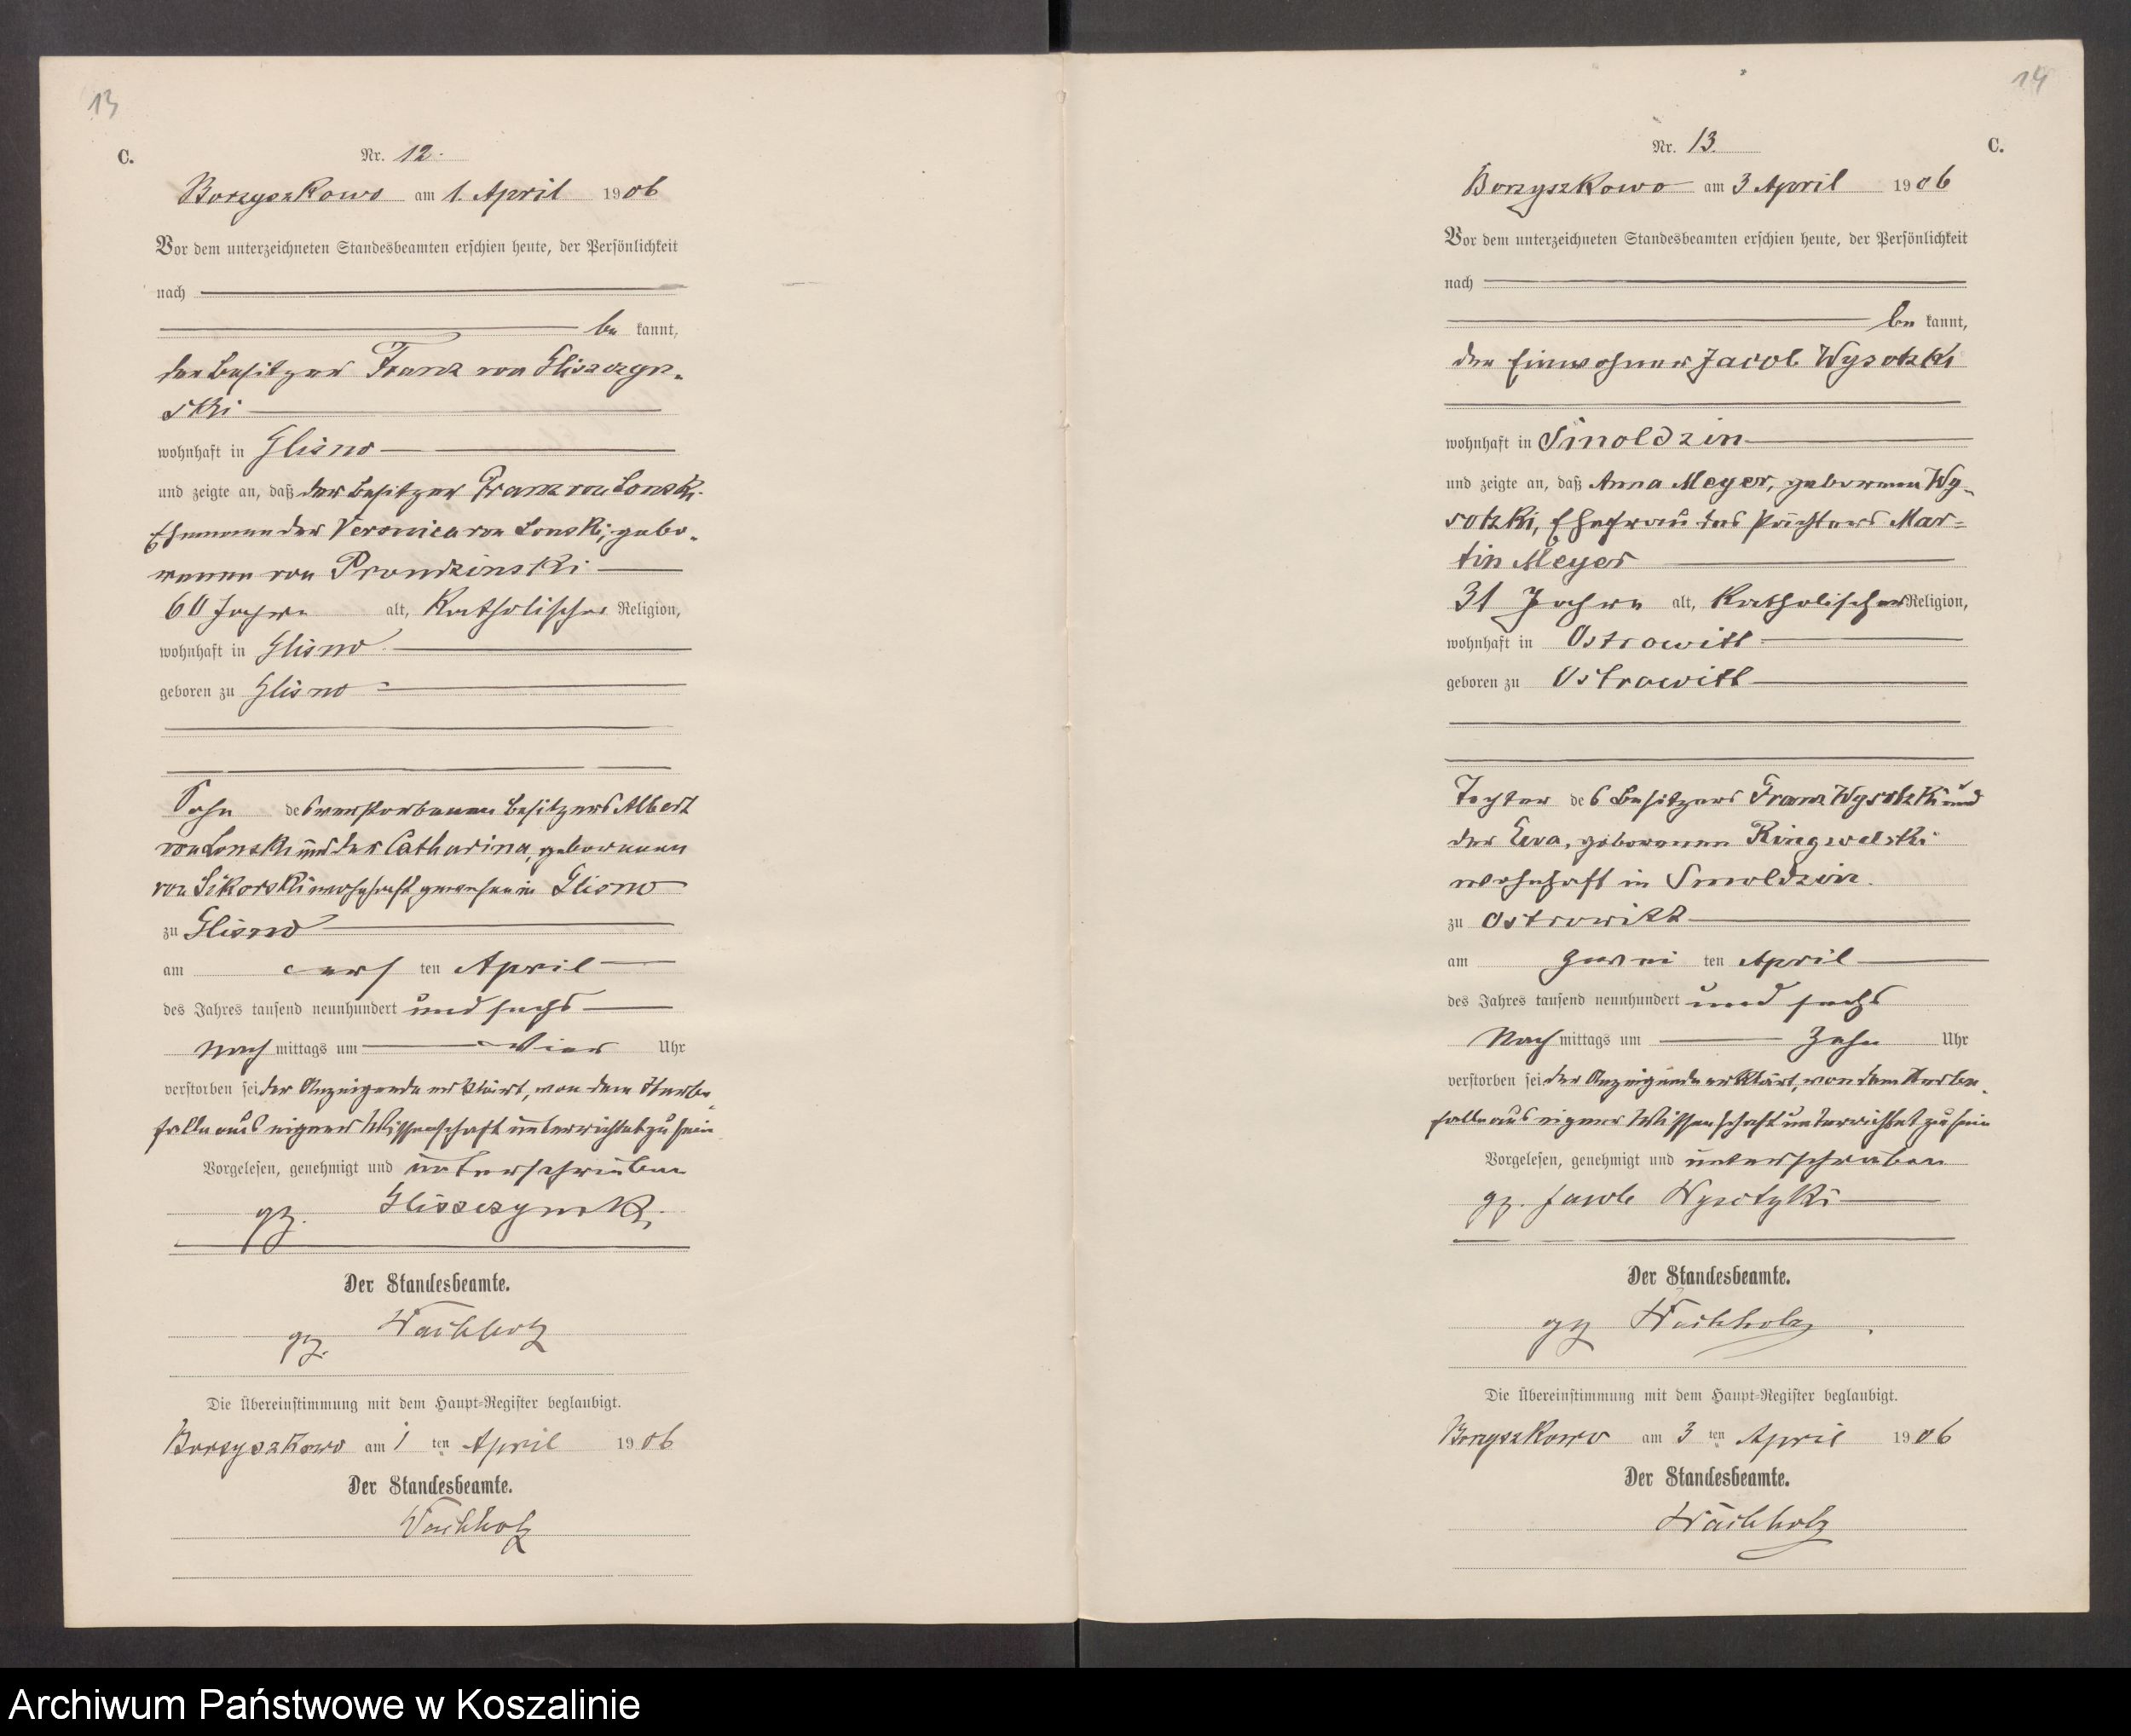 13
C.
Nr. 12.
Borzyszkowo am 1. April 1906
Vor dem unterzeichneten Standesbeamten erschien heute, der Persönlichkeit
nach
be kannt,
der Besitzer Franz von Gliszczyn-
ski
wohnhaft in Glisno
und zeigte an, daß der Besitzer Franz von Lonski
Ehemann der Veronica von Lonski, gebo-
renen von Prondzinski
60 Jahre alt, Katholischer Religion,
wohnhaft in Glisno
geboren zu Glisno
Sohn des verstorbenen Besitzers Albert
von Lonski und der Catharina, geborenen
von Sikorski wohnhaft gewesen in Glisno
zu Glisno
am ers ten April
des Jahres tausend neunhundert und sechs
Nach mittags um vier Uhr
verstorben sei der Anzeigende erklärt, von dem Sterbe-
falle aus eigener Wissenschaft unterrichtet zu sein
Vorgelesen, genehmigt und unterschrieben
gz. Glisszynski
Der Standesbeamte.
gz. Wachholz
Die Übereinstimmung mit dem Haupt-Register beglaubigt.
Borzyszkowo am 1 ten April 1906
Der Standesbeamte.
Wachholz
14
C.
Nr. 13.
Borzyszkowo am 3 April 1906
Vor dem unterzeichneten Standesbeamten erschien heute, der Persönlichkeit
nach
be kannt,
der Einwohner Jacob Wysotzki
wohnhaft in Smoldzin
und zeigte an, daß Anna Meyer, geborenen Wy-
sotzki, Ehefrau des Pächters Mar-
tin Meyer
31 Jahre alt, Katholischer Religion,
wohnhaft in Ostrowitt
geboren zu Ostrowitt
Tochter des Besitzers Franz Wysotzki und
der Eva, geborenen Ringwelski
wohnhaft in Smoldzin.
zu Ostrowitt
am zwei ten April
des Jahres tausend neunhundert und sechs
Nach mittags um Zehn Uhr
verstorben sei der Anzeigende erklärt, von dem Sterbe-
falle aus eigener Wissenschaft unterrichtet zu sein
Vorgelesen, genehmigt und unterschrieben
gz. Jacob Wysotzki
Der Standesbeamte.
gz Wachholz
Die Übereinstimmung mit dem Haupt-Register beglaubigt.
Borzyszkowo am 3 ten April 1906
Der Standesbeamte.
Wachholz
Archiwum Państwowe w Koszalinie